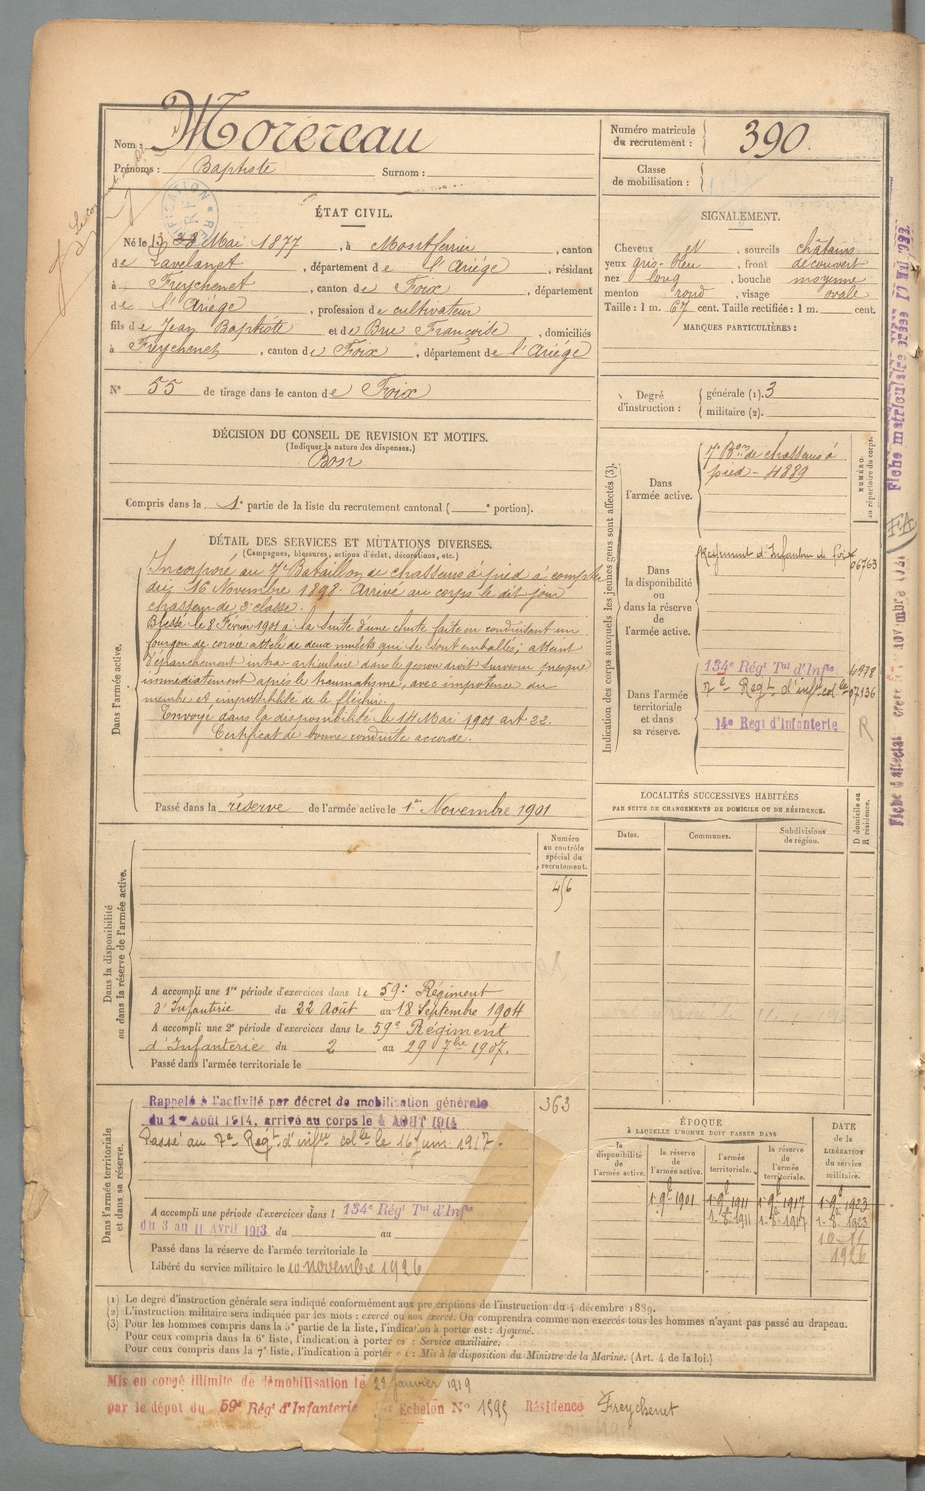 Nom : Morereau
Prénoms : Baptiste Surnom :
ÉTAT CIVIL.
Né le 13 Mai 1877, à Montferrier, canton
de Lavelanet, département de l'Ariège, résidant
à Freychenet, canton de Foix, département
de l'Ariège, profession de cultivateur
fils de Jean Baptiste et de Brue Françoise, domiciliés
à Freychenet, canton de Foix, département de l'Ariège
N° 55 de tirage dans le canton de Foix
DÉCISION DU CONSEIL DE REVISION ET MOTIFS.
(Indiquer la nature des dispenses.)
Bon
Compris dans la 1e partie de la liste du recrutement cantonal ( e portion).
DÉTAIL DES SERVICES ET MUTATIONS DIVERSES.
(Campagnes, blessures, actions d'éclat, décorations, etc.)
Dans l'armée active.
Incorporé au 7e Bataillon de chasseurs à pied à compter
du 16 Novembre 1898. Arrivé au corps le dit jour
chasseur de 2e classe.
Blessé le 8 Février 1901 à la suite d'une chute faite en conduisant un
fourgon de corvée attelé de deux mulets que se sont emballés; atteint
d'épanchement intra articulaire dans le genou droit survenu presque
immédiatement après le traumatisme, avec impotence du
membre et impossibilité de le fléchir.
Envoyé dans la disponibilité le 14 Mai 1901 art 22.
Certificat de bonne conduite accordé.
Passé dans la réserve de l'armée active le 1er Novembre 1901
Dans la disponibilité
ou dans la réserve de l'armée active.
Numéro
au contrôle
spécial du
recrutement.
456
A accompli une 1re période d'exercices dans le 59e Régiment
d'Infanterie du 22 Août au 18 Septembre 1904
A accompli une 2e période d'exercices dans le 59e Régiment
d'Infanterie du 2 au 29 7bre 1907.
Passé dans l'armée territoriale le
Dans l'armée territoriale
et dans sa réserve.
Rappelé à l'activité par décret de mobilisation générale
du 1er Août 1914, arrivé au corps le 4 AOUT 1914
363
Passé au 7e Régt d'infrie colle le 16 juin 1917.
A accompli une période d'exercices dans l 134e Régt Tal d'Infie
du 3 au 11 Avril 1913 du au
Passé dans la réserve de l'armée territoriale le
Libéré du service militaire le 10 novembre 1926
Numéro matricule
du recrutement : 390.
Classe
de mobilisation :
SIGNALEMENT.
Cheveux et, sourcils châtains
yeux gris-bleu, front découvert
nez long, bouche moyenne
menton rond, visage ovale
Taille : 1 m. 67 cent. Taille rectifiée : 1 m. cent.
MARQUES PARTICULIÈRES :
Degré
d'instruction :
générale (1). 3
militaire (2).
Indication des corps auxquels les jeunes gens sont affectés (3).
NUMÉRO
au répertoire du corps.
Dans
l'armée active.
7e Bon de chasseurs à
pied - 4889
Dans
la disponibilité
ou
dans la réserve
de
l'armée active.
Régiment d'Infanterie de Foix 06763
Dans l'armée
territoriale
et dans
sa réserve.
134e Régt Tal d'Infie 4978
7e Régt d'infie colle 07136
14e Régt d'Infanterie R
LOCALITÉS SUCCESSIVES HABITÉES
PAR SUITE DE CHANGEMENTS DE DOMICILE OU DE RÉSIDENCE.
Dates. Communes. Subdivisions
de région.
D domicile ou
R résidence.
ÉPOQUE
À LAQUELLE L'HOMME DOIT PASSER DANS
la
disponibilité
de
l'armée active.
la réserve
de
l'armée active.
l'armée
territoriale.
la réserve
de
l'armée
territoriale.
DATE
de la
LIBÉRATION
du service
militaire.
1-9e 1901 1-9e 1911 1-9e 1917 1-9e 1923
1-8-1911 1-8-1917 1-8-1923
10-11
1926
(1) Le degré d'instruction générale sera indiqué conformément aux prescriptions de l'instruction du 4 décembre 1889.
(2) L'instruction militaire sera indiquée par les mots : exercé ou non exercé. On comprendra comme non exercés tous les hommes n'ayant pas passé au drapeau.
(3) Pour les hommes compris dans la 5e partie de la liste, l'indication à porter est : Ajourné.
Pour ceux compris dans la 6e liste, l'indication à porter est : Service auxiliaire.
Pour ceux compris dans la 7e liste, l'indication à porter est : Mis à la disposition du Ministre de la Marine. (Art. 4 de la loi.)
Mis en congé illimité de démobilisation le 29 janvier 1919
par le dépot du 59e Régt d'Infanterie Echelon N° 1595 Résidence Freychenet
Fiche matriculaire
FA